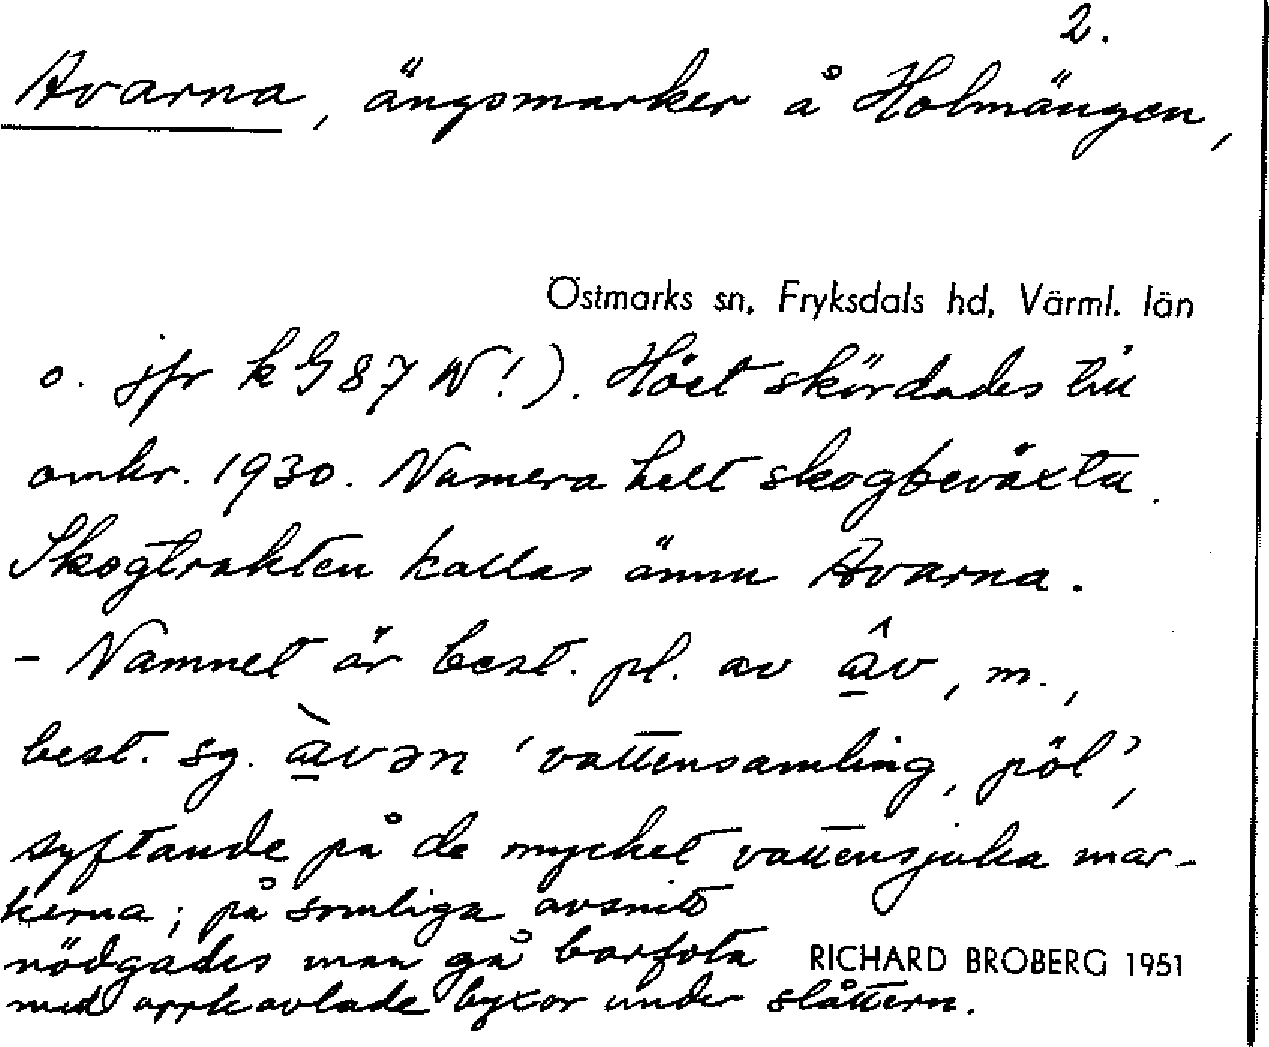 2.
Avarna, ängsmarker å Holmängen,
Östmarks sn, Fryksdals hd, Värml. län
o. jfr kG87 N!). Höet skördades till
omkr. 1930. Numera helt skogbeväxta.
Skogtrakten kallas ännu Avarna.
- Namnet är best. pl. av â̲v, m.,
best. sg. à̲vən 'vattensamling, pöl',
syftande på de mycket vattensjuka mar-
kerna; på somliga avsnitt
nödgades man gå barfota
med uppkavlade byxor under slåttern.
RICHARD BROBERG 1951